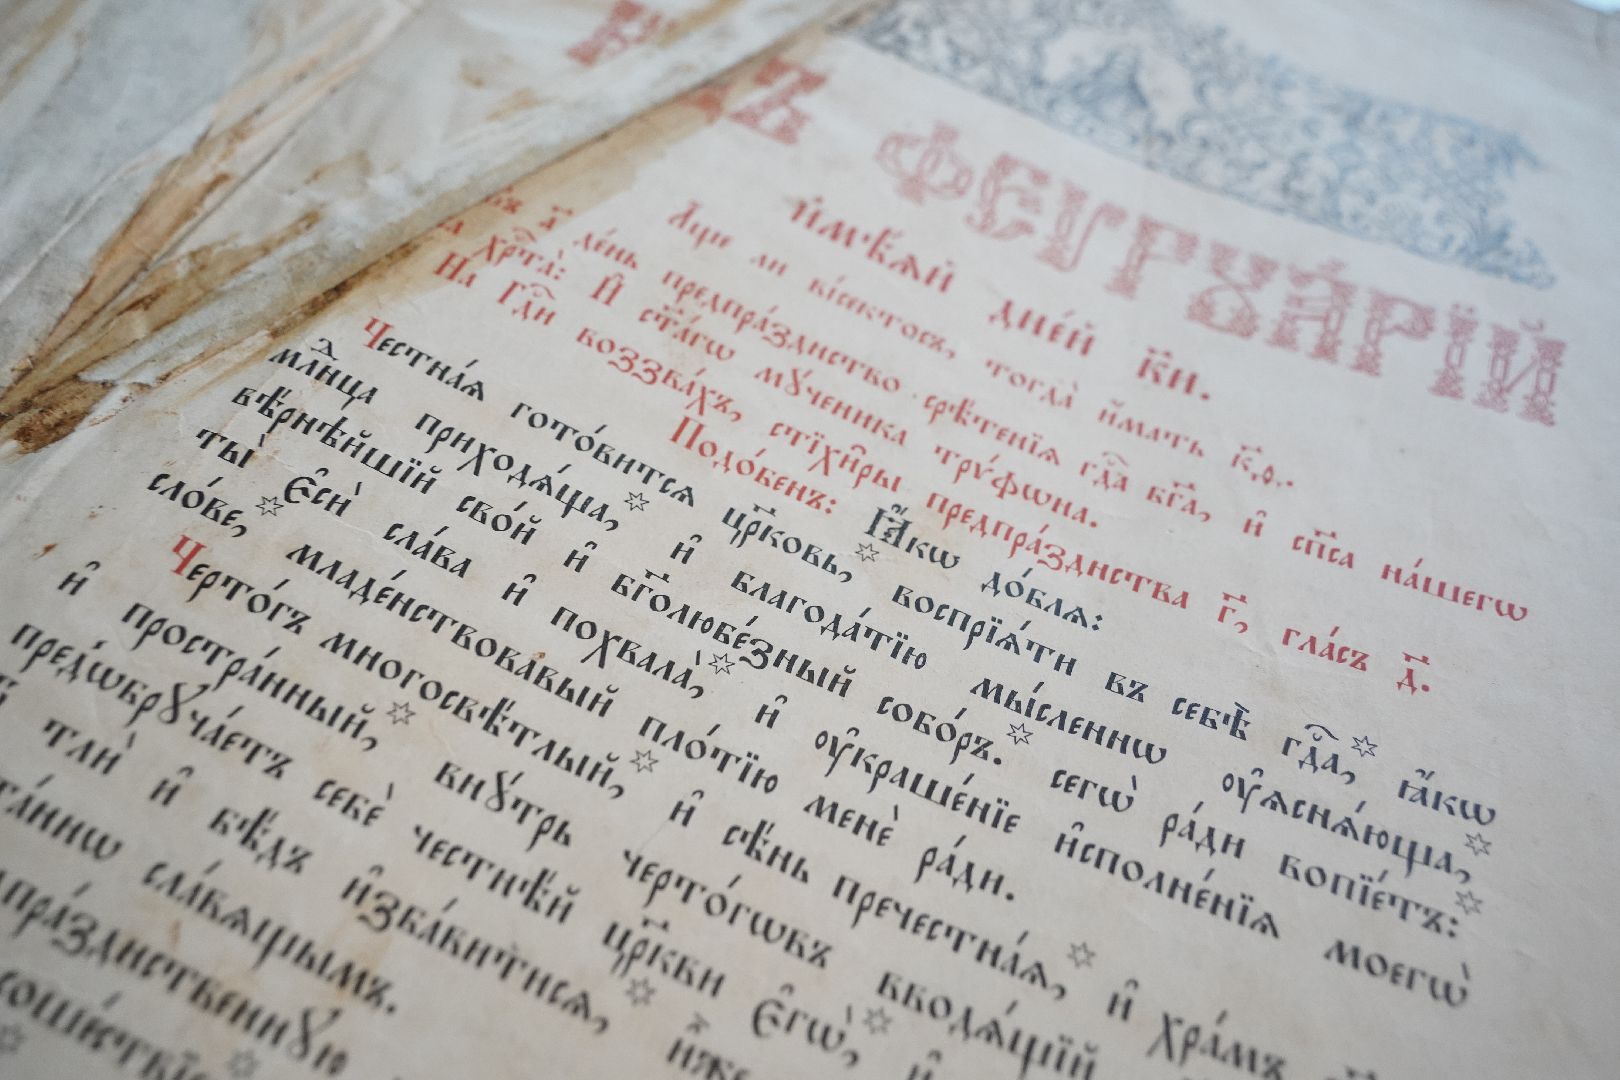 ФЕѴРꙊА́РЇЙ
И҆мѣ́ѧй дне́й к҃и.
А҆́ще ли ви́сектосъ, тогда̀ и҆́мать к҃ѳ.
Въ а҃ де́нь предпра́зднство срѣ́тенїѧ гдⷭ҇а бг҃а, и҆ сп҃са на́шегѡ
хрⷭ҇та̀: И҆ ст҃а́гѡ мꙋ́ченика трѵ́фѡна.
На Гдⷭ҇и воззва́хъ, стїхи̑ры предпра́зднства г҃, гла́съ д҃.
Подо́бенъ: Ꙗ҆́кѡ до́блѧ:
Честна́ѧ гото́витсѧ цр҃ковь, воспрїѧ́ти въ себѣ̀ гдⷭ҇а, ꙗ҆́кѡ
млⷣнца приходѧ́ща, и҆ благода́тїю мы́сленнѡ ᲂу҆ѧснѧ́юща,
вѣ́рнѣйшїй сво́й и҆ бг҃олюбе́зный собо́ръ. сегѡ̀ ра́ди вопїе́тъ:
ты̀ є҆сѝ сла́ва и҆ похвала̀, и҆ ᲂу҆краше́нїе и҆сполне́нїѧ моегѡ̀
сло́ве, младе́нствовавый пло́тїю менє̀ ра́ди.
Черто́гъ многосвѣ́тлый, и҆ сѣ́нь пречестна́ѧ, и҆ хра́мъ
и҆ простра́нный, внꙋ́трь черто́гѡвъ вводѧ́щїй
предѡбрꙋча́етъ себѐ честнѣ́й цр҃кви є҆гѡ̀, и҆
тлѝ и҆ бѣ́дъ и҆зба́витисѧ, и҆̀же
сла́вѧщымъ.